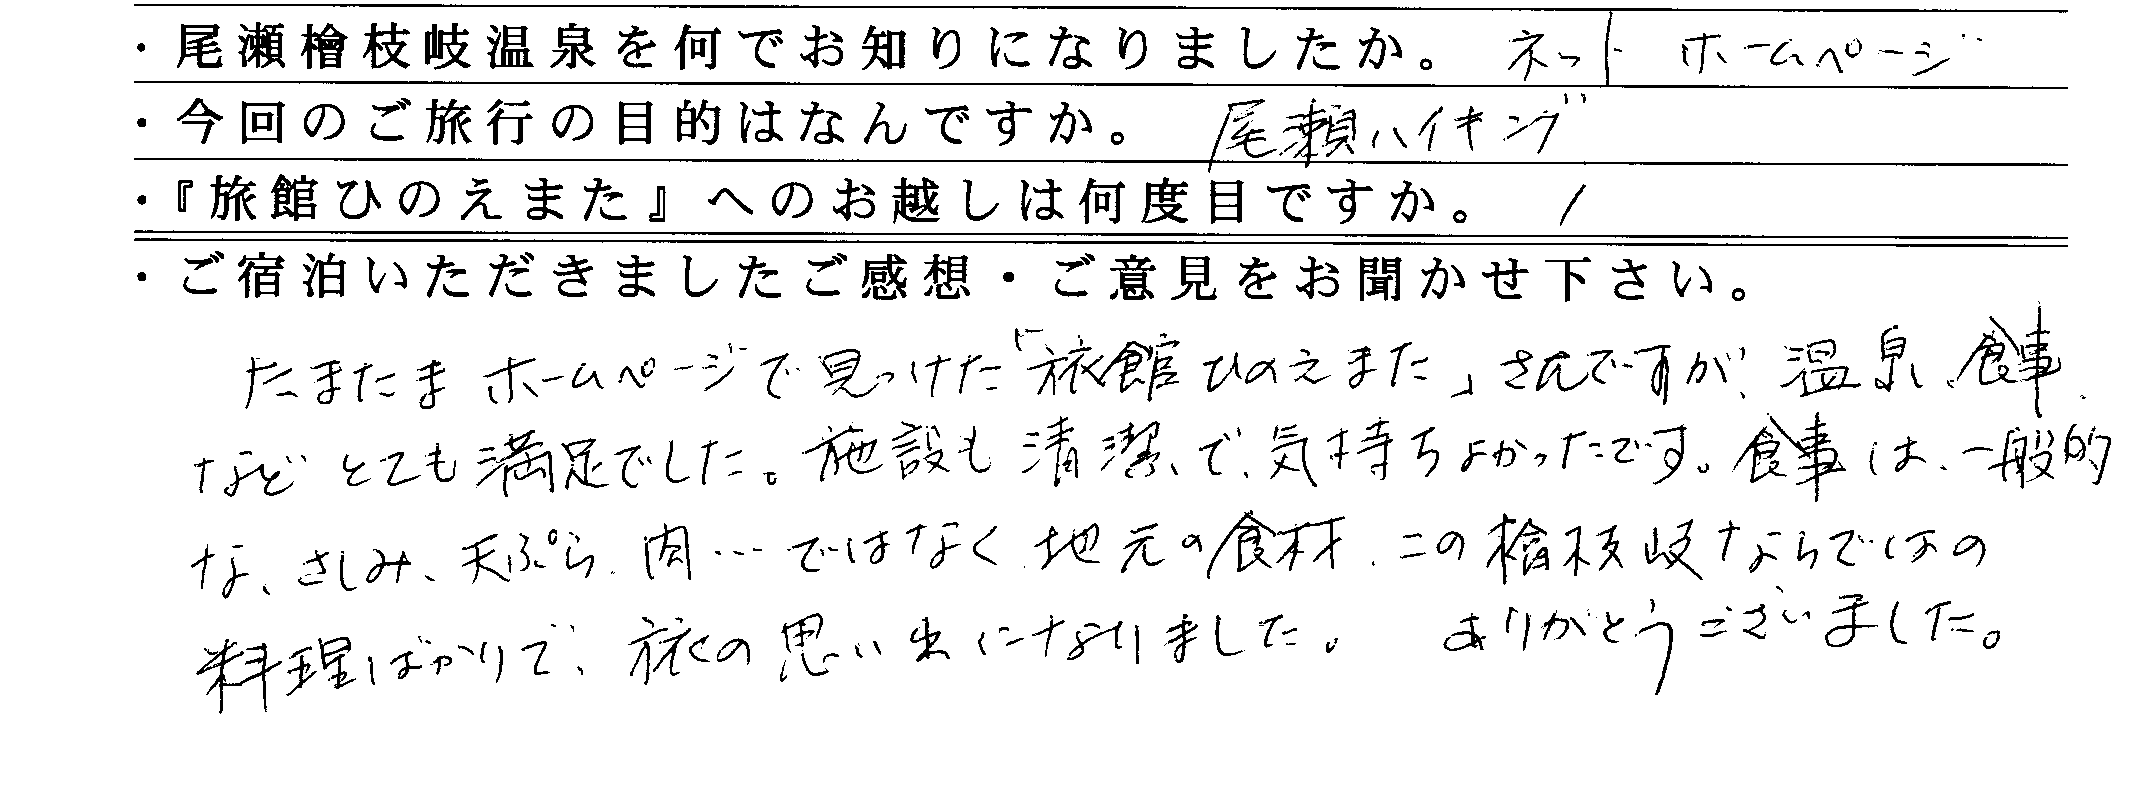 ・尾瀬檜枝岐温泉を何でお知りになりましたか。 ネット ホームページ
・今回のご旅行の目的はなんですか。 尾瀬ハイキング
・『旅館ひのえまた』へのお越しは何度目ですか。 1
・ご宿泊いただきましたご感想・ご意見をお聞かせ下さい。
たまたま ホームページで見つけた「旅館 ひのえまた」さんですが、温泉、食事、
など とても満足でした。施設も 清潔、で、気持ちよかったです。食事は、一般的
な、さしみ、天ぷら、肉…ではなく 地元の食材、この檜枝岐ならではの
料理ばかりで、旅の思い出になりました。 ありがとうございました。